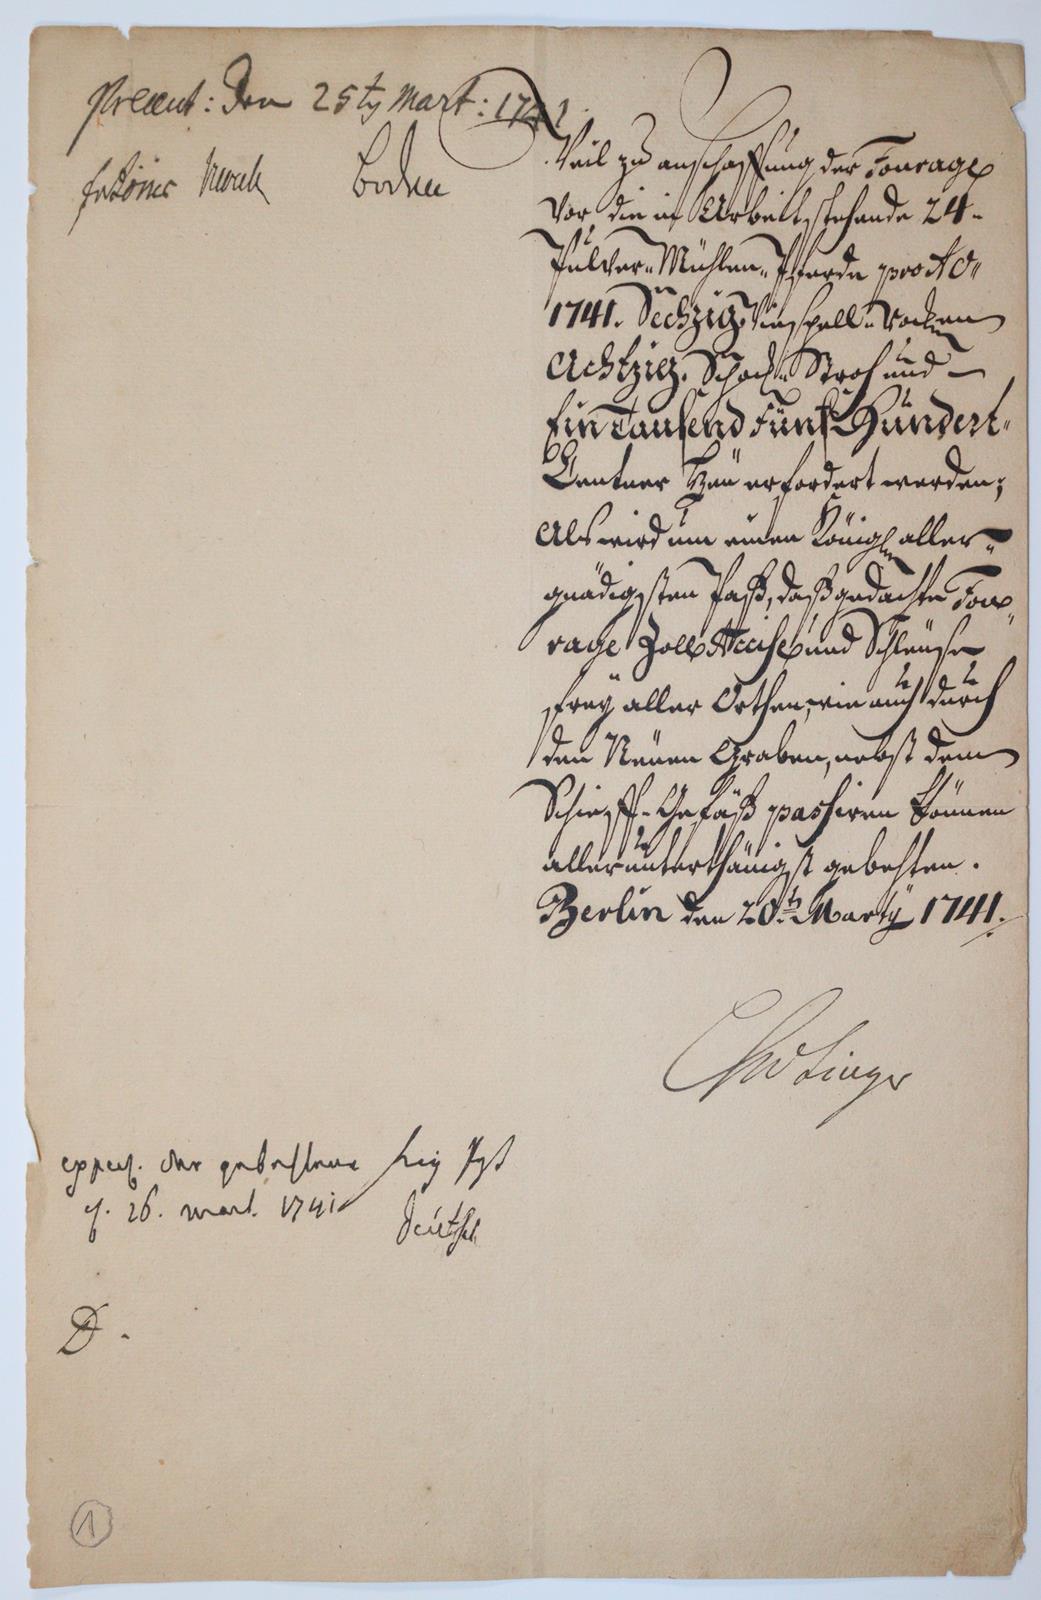 Præsent: Den 25ty Mart: 1741.
Boden
Weil zu anschaffung der Fourage
vor die in Arbeit stehende 24.
Pulver-Mühlen-Pferde pro Ao
1741. Sechzig Winspell Rocken
Achtzig. Schock Stroh und
Ein Tausend Fünf Hundert
Centner Heu erfordert werden;
Als wird um einen Königln aller-
gnädigsten Paß, daß gedachte Fou-
rage Zoll Accise und Schleuse
frey aller Orthen, wie auch durch
den Neuen Graben, nebst dem
Schieff-Gefäß passiren können
allerunterthänigst gebehten.
Berlin den 20ts Marty 1741.
exped. der gebehtene frey Paß
d. 26. mart. 1741
D.
1